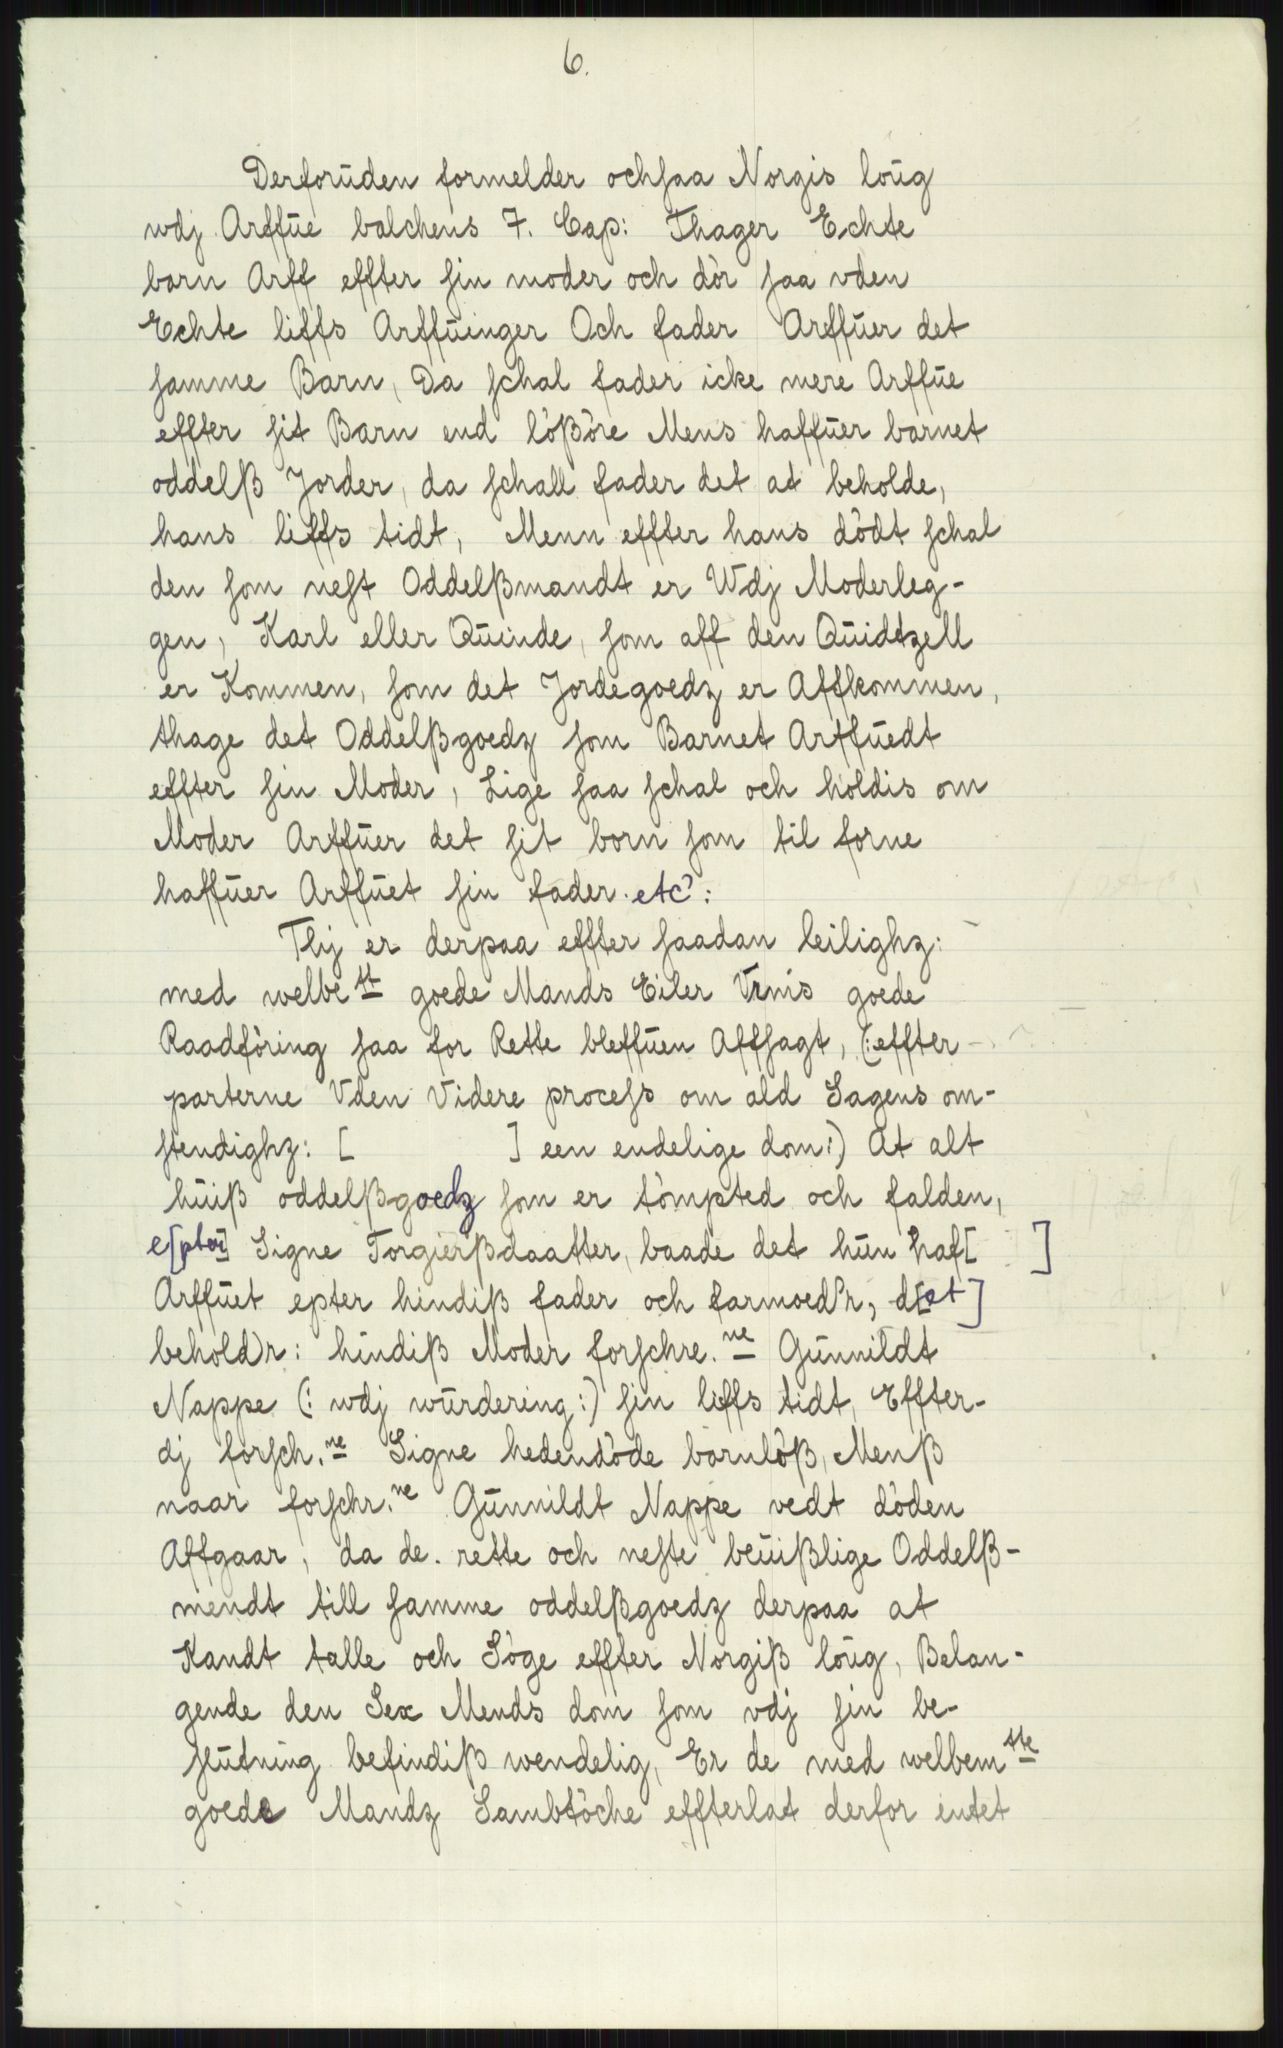 6.
Derforuden formelder ochsaa Norgis loug
wdj Arffue balchens 7. Cap: Thager Echte
barn Arff effter sin moder och dör saa vden
Echte liffs Arffuinger Och fader Arffuer det
samme Barn, Da schal fader icke mere Arffue
effter sit Barn end lößöre Mens haffuer barnet
oddelß Jorder, da schall fader det at beholde,
hans liffs tidt, Menn effter hans dödt schal
den som nest Oddelßmandt er Wdj Moderleg-
gen, Karl eller Quinde, som aff den Quidtzell
er Kommen, som det Jordegoedz er Affkommen,
thage det Oddelßgoedz som Barnet Arffuedt
effter sin Moder, Lige saa schal och holdis om
Moder Arffuer det sit born som til forne
haffuer Arffuet sin fader. etc:
Thj er derpaa effter saadan leilighz:
med welbe tt goede Mands Eiler Vrnis goede
Raadföring saa for Rette bleffuen Affsagt, (: effter
parterne Vden Videre process om ald Sagens om-
stendighz: [ ] een endelige dom:) At alt
huiß oddelßgoedz som er tömpted och falden,
e[pter] Signe Torgierßdaatter, baade det hun haf[ ]
Arffuet epter hindiß fader och farmoed'r, d[et]
behold)r: hindiß Moder forschre. ne Gunnildt
Nappe (: wdj wurdering:) sin liffs tidt, Effter-
dj forsch. ne Signe hedendöde barnlöß, Menß
naar forschr. ne Gunnildt Nappe vedt döden
Affgaar, da de. rette och neste beuißlige Oddelß-
mendt till samme oddelßgoedz derpaa at
Kandt talle och Söge effter Norgiß loug, Belan-
gende den Sex Mends dom som vdj sin be-
slutning befindiß wendelig, Er de med welbem tte
goede Mandz Sambtöche effterlat derfor intet